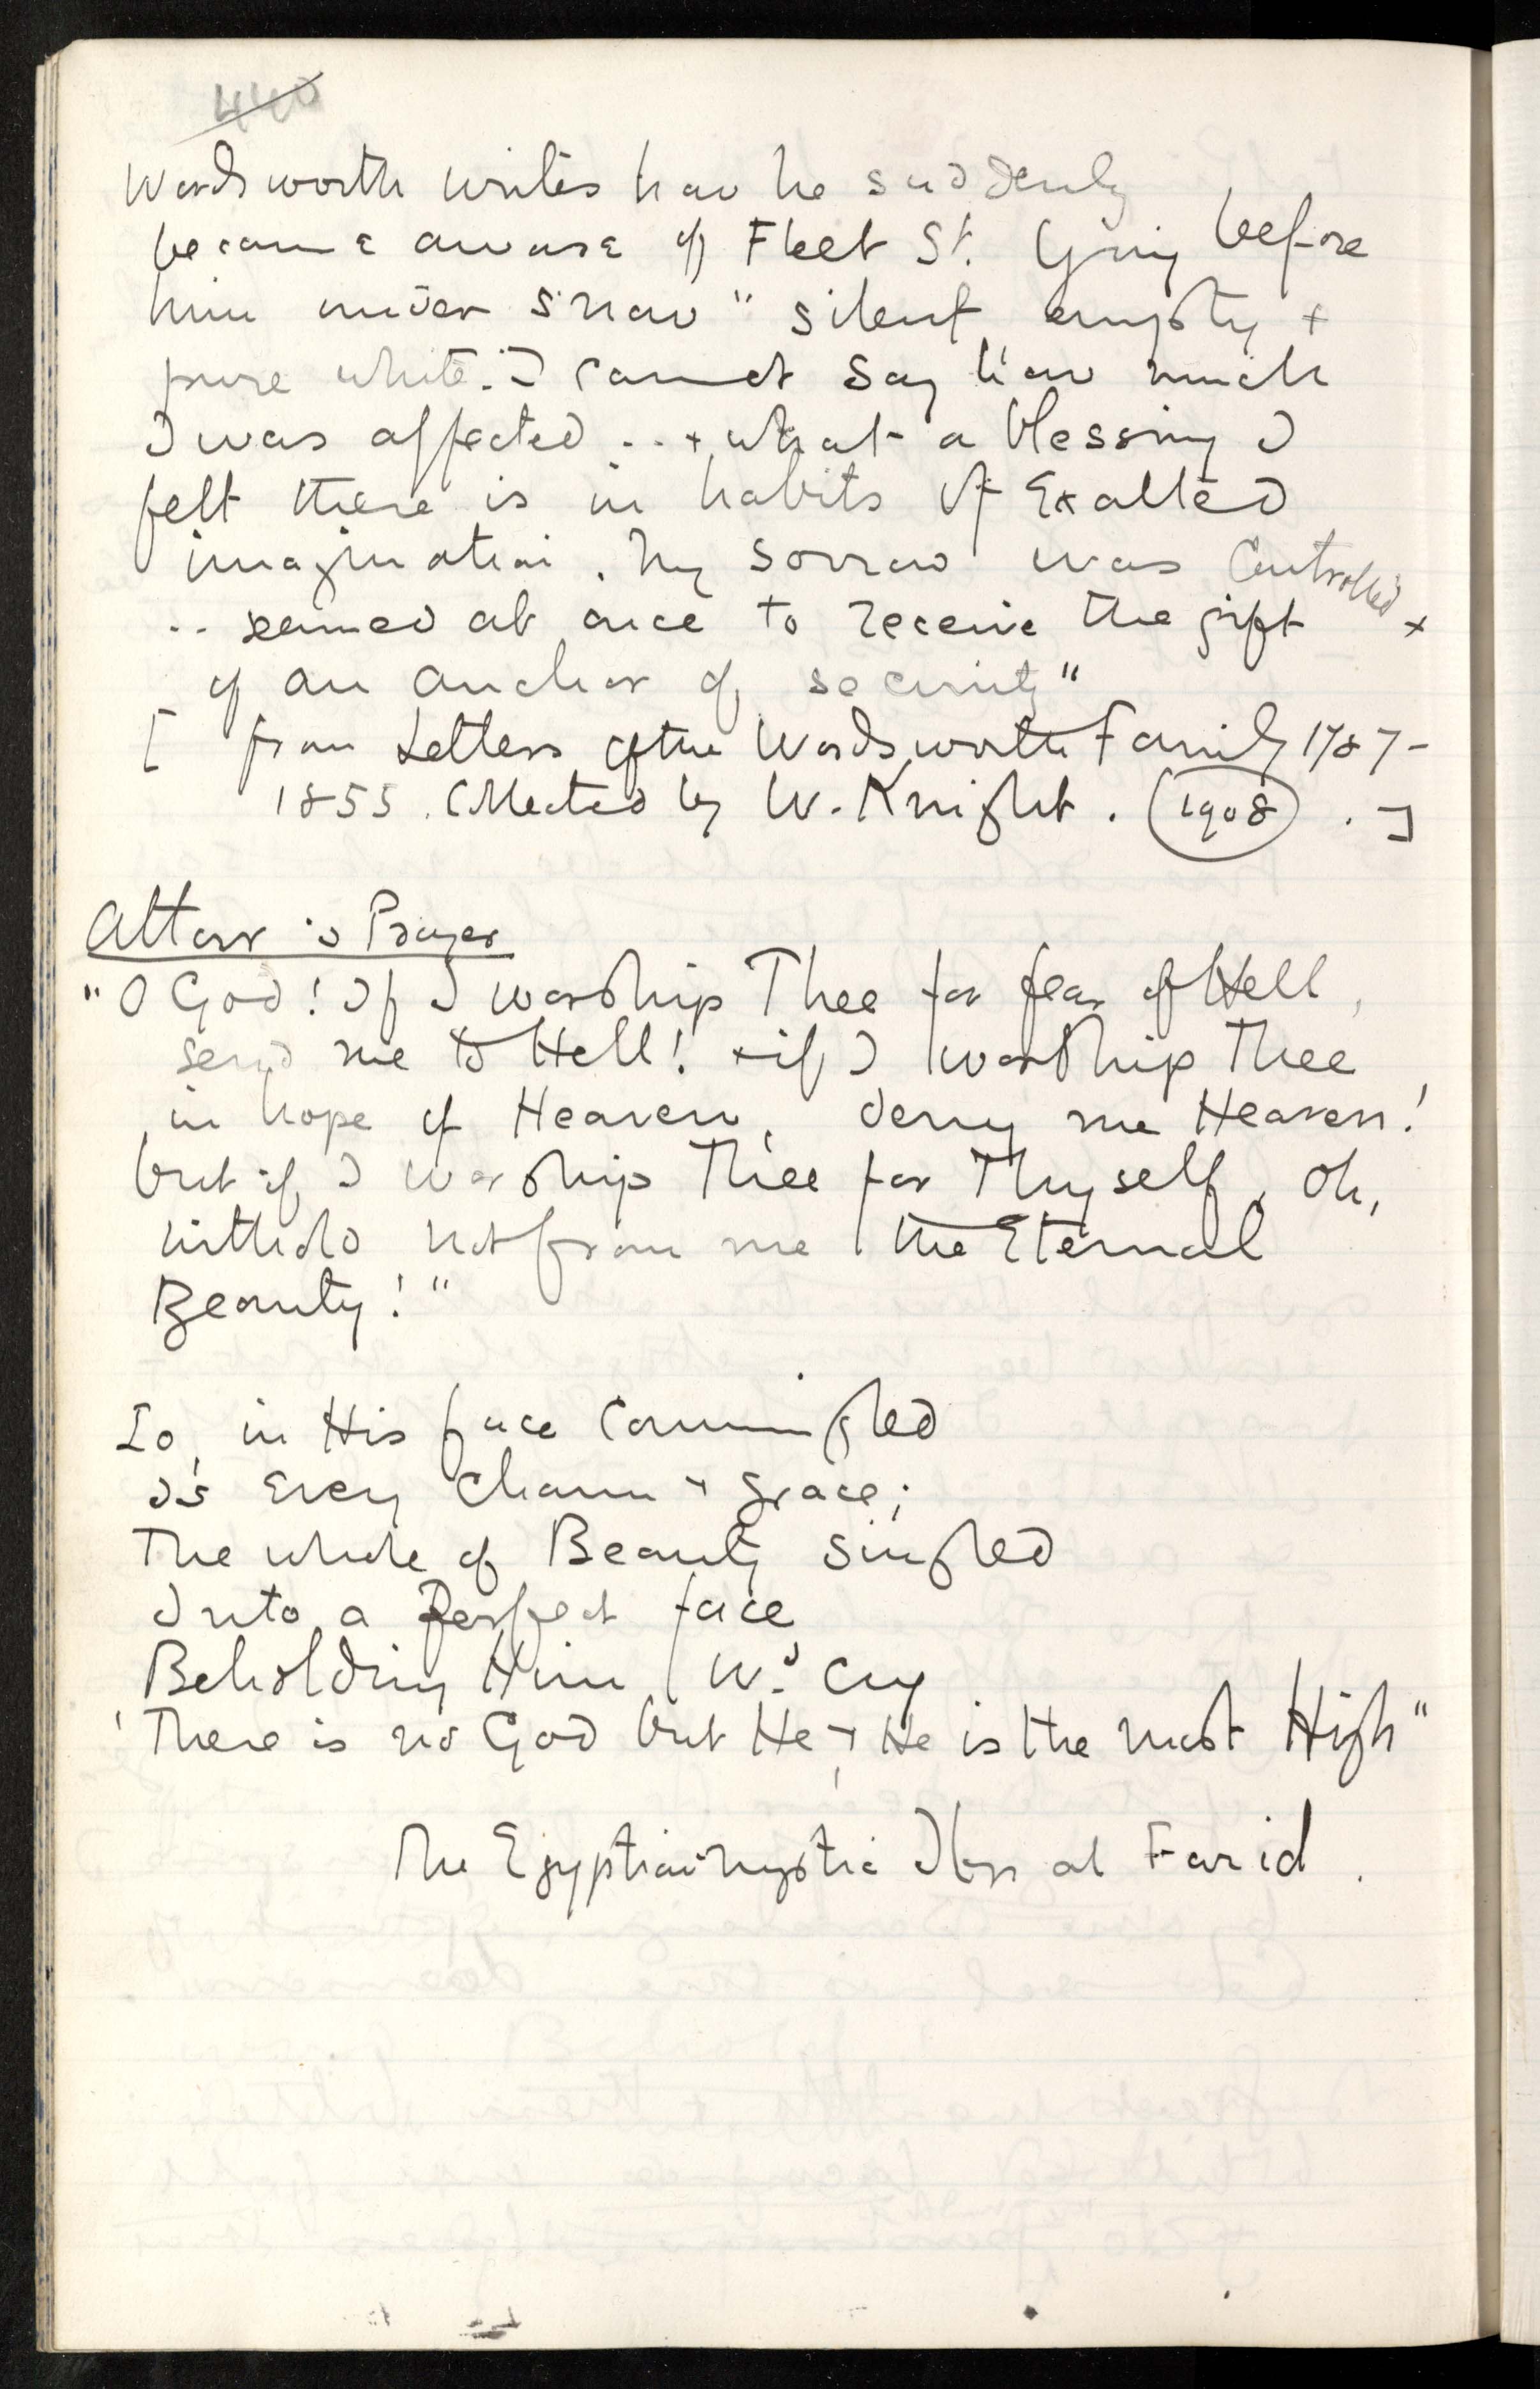 440
Wordsworth writes how he suddenly
became aware of Fleet St. lying before
him under snow "silent empty +
pure white. I cannot say how much
I was affected .. + what a blessing I
felt there is in habits of Exalted
imagination. My sorrow was controlled +
.. seemed at once to receive the gift
of an anchor of security"
[ from Letters of the Wordsworth Family 1787-
1855. Collected by W. Knight. (1908) . ]
Attar's Prayer
"O God! If I worship Thee for fear of Hell,
send me to Hell! + if I worship Thee
in hope of Heaven, deny me Heaven!
but if I worship Thee for Thyself, Oh,
withold not from me the Eternal
Beauty!"
Lo, in His face commingled
Is Every Charm + grace;
The whole of Beauty singled
Into a Perfect face
Beholding Him Wd cry
'There is no God but He, + He is the most High"
The Egyptian mystic Ibn al Farid.